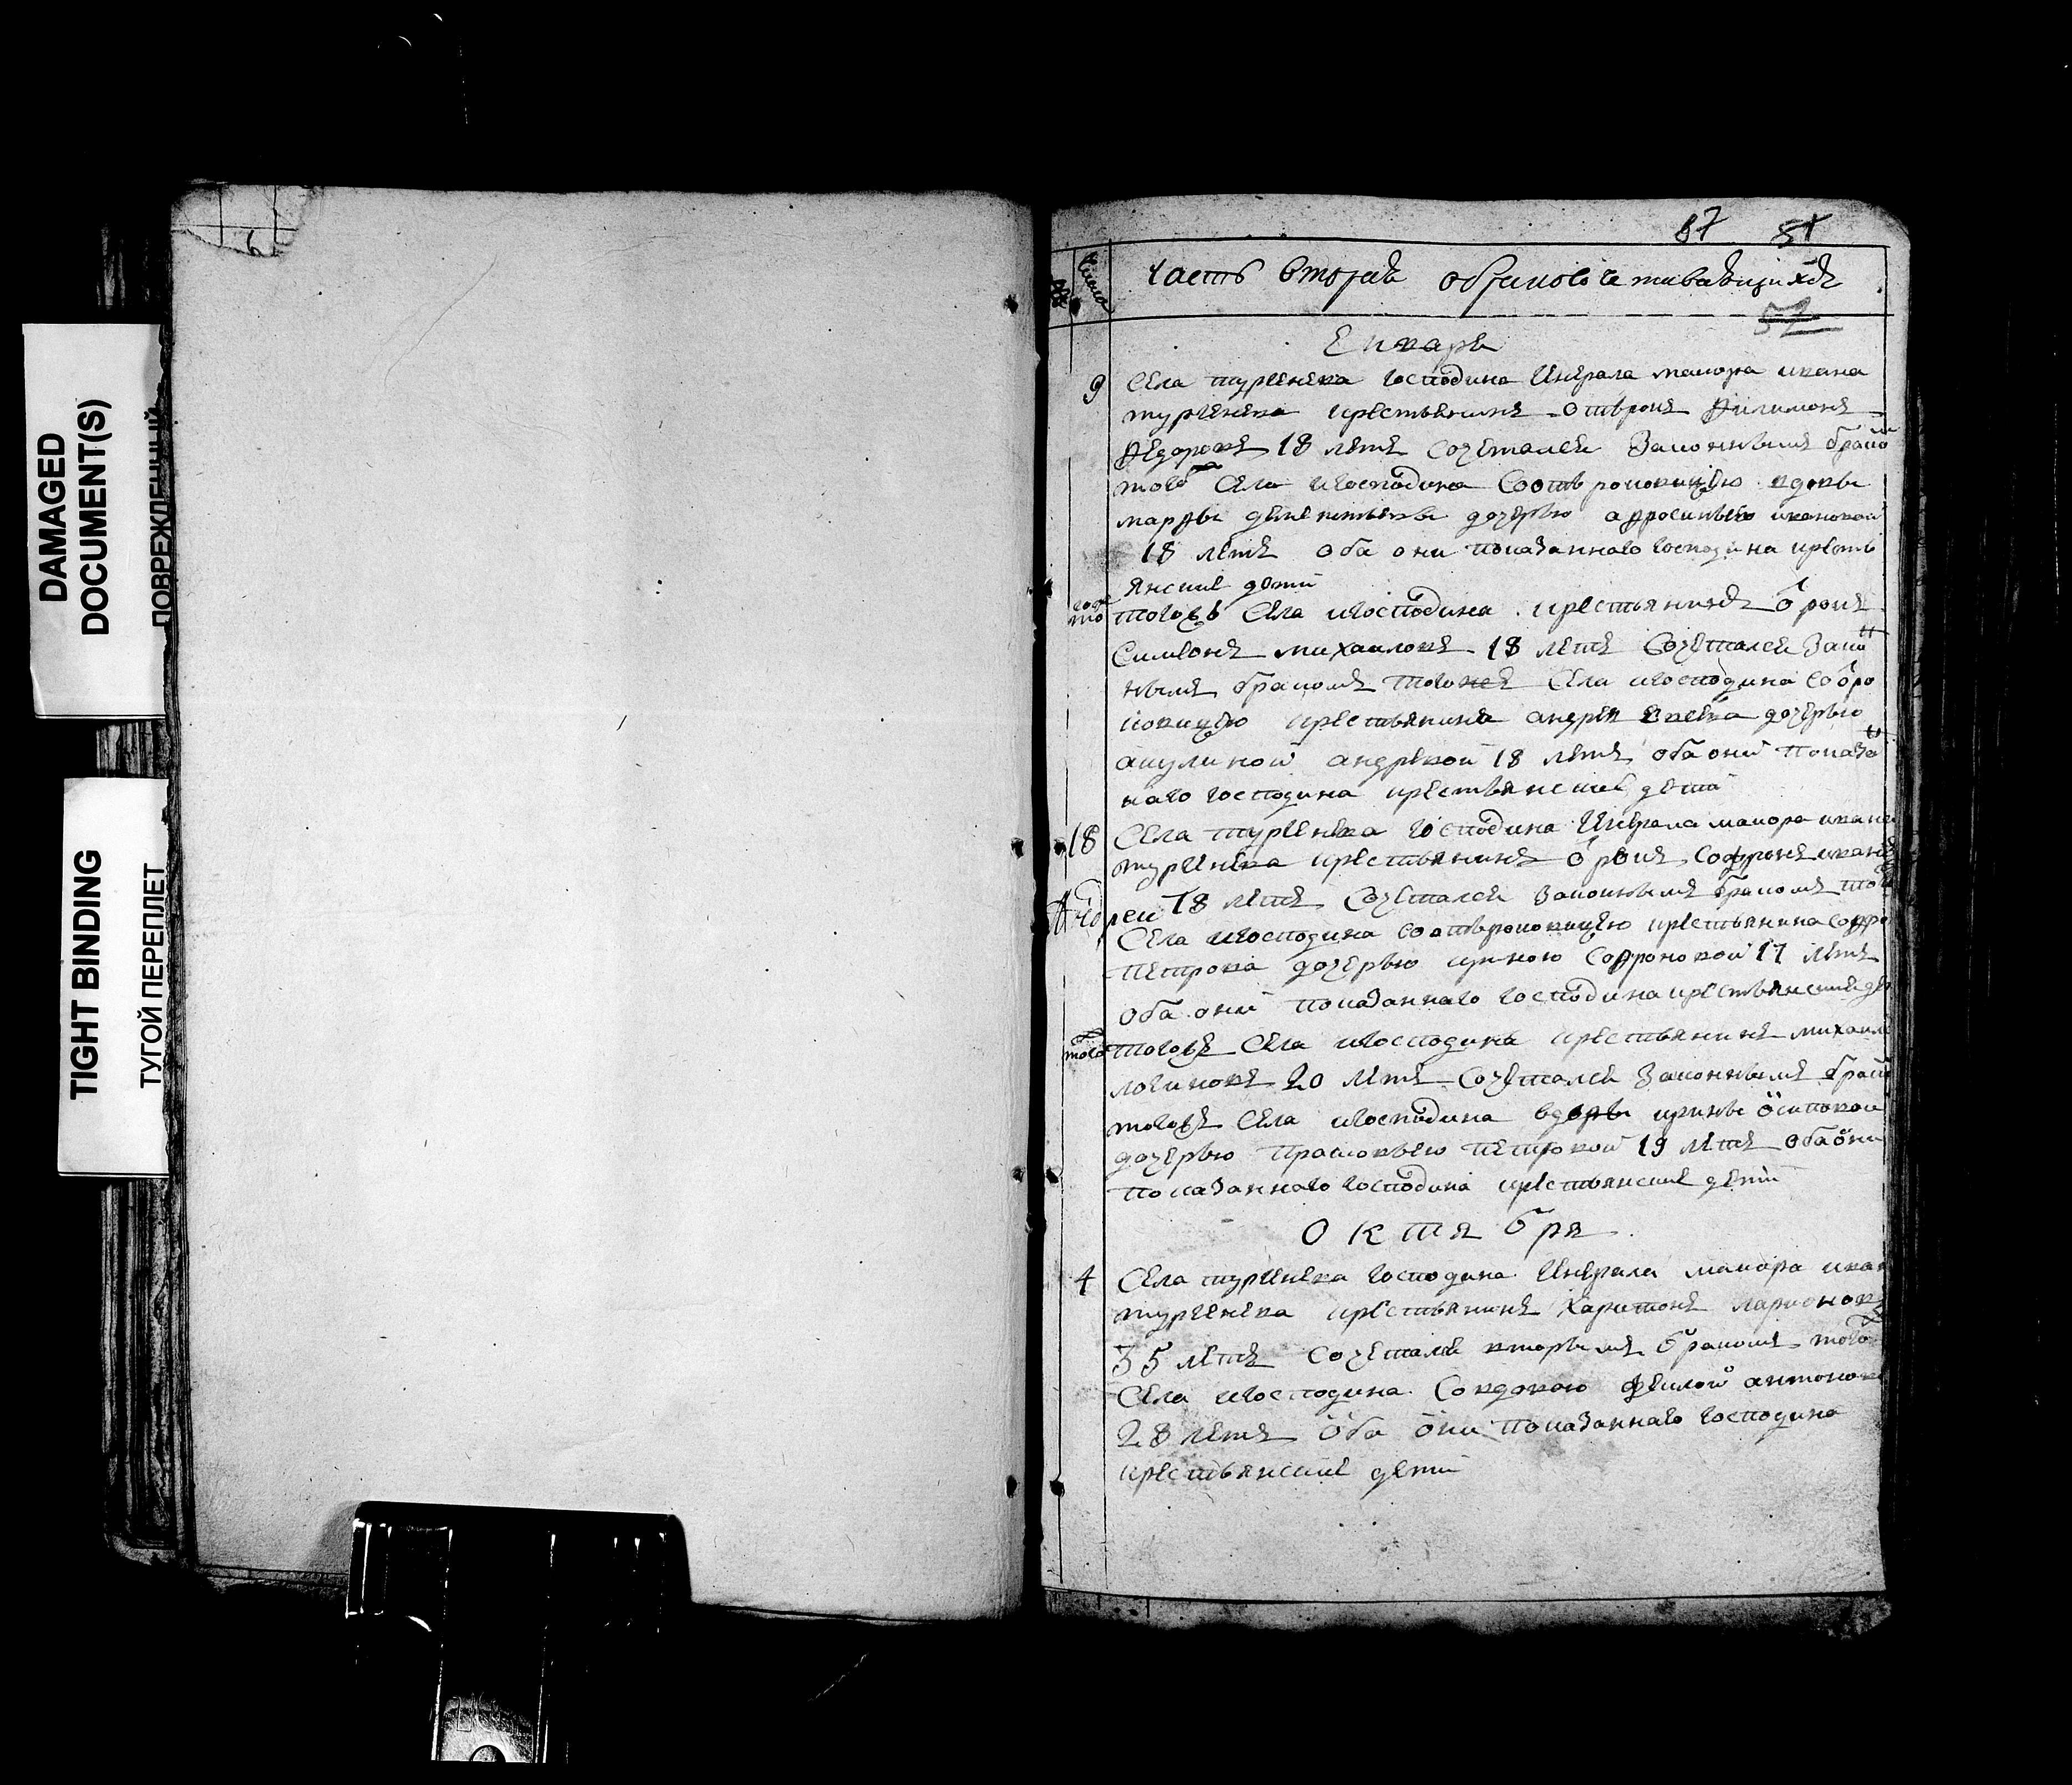 DAMAGED DOCUMENT(S)
ПОВРЕЖДЕННЫЙ
TIGHT BINDING
ТУГОЙ ПЕРЕПЛЕТ
6
87
Число
часть вторая обрачивающихся
57
Енварь
9 Села тургенева господина генерала маиора ивана
тургенева крестьянинъ отрокъ Филимонъ
Федоровъ 18 летъ сочетался законнымъ брако
того села и господина со отроковицею вдовы
марфы дементьевы дочерью афросиньею ивановой
18 летъ оба они показанного господина кресть
янские дети
тогожъ села и господина крестьянинъ отрокъ
Симеонъ михаиловъ 18 летъ сочетался зако
нымъ бракомъ тогожъ села и господина со отро
ковицею крестьянина андрея дочерью
акулиной андревой 18 летъ оба они показа
наго господина крестьянские дети
18 Села тургенева господина генерала маиора ивана
тургенева крестьянинъ отрокъ Софронъ ивановъ
18 летъ сочетался законнымъ бракомъ того
Андреи
села и господина со отроковицею крестьянина софро
петрова дочерью ириною софроновой 17 летъ
оба они показанного господина крестьянские де
того тогожъ села и господина крестьянинъ михаил
логиновъ 20 летъ сочетался законнымъ брако
тогожъ села и господина вдовы ирины осиповой
дочерью прасковьею петровой 19 летъ оба они
показанного господина крестьянские дети
Октября
4 Села тургенева господина генерала маиора иван
тургенева крестьянинъ харитонъ ларионовъ
35 летъ сочетался вторымъ бракомъ того
села и господина со вдовою феклой антоново
28 летъ оба они показанного господина
крестьянские дети